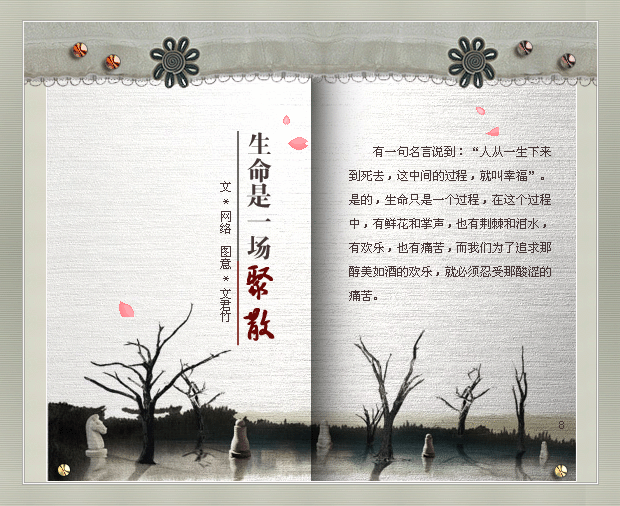 生命是一场
聚散
文*网络 图意*文君竹
有一句名言说到：“人从一生下来
到死去，这中间的过程，就叫幸福”。
是的，生命只是一个过程，在这个过程
中，有鲜花和掌声，也有荆棘和泪水，
有欢乐，也有痛苦，而我们为了追求那
醇美如酒的欢乐，就必须忍受那酸涩的
痛苦。
8